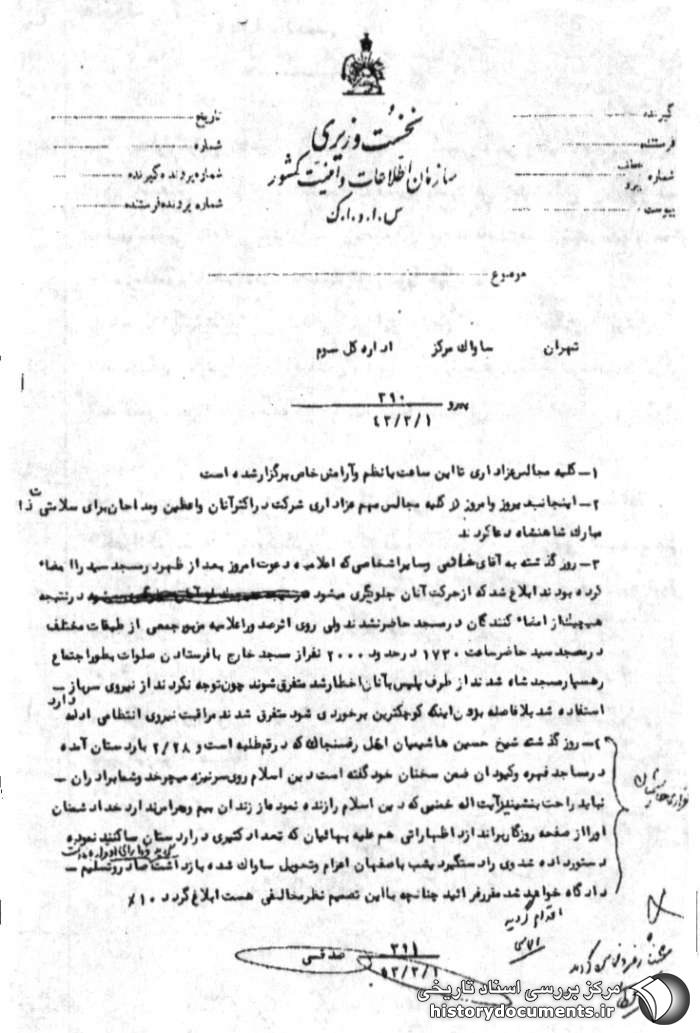 نخست وزیری
سازمان اطلاعات و امنیت کشور
س.ا.و.ا.ک
گیرنده
فرستنده
شماره
پیوست
تاریخ
شماره
شماره پرونده گیرنده
شماره پرونده فرستنده
موضوع
تهران ساواك مرکز اداره کل سوم
پیرو ۳۹۰
۴۳/۳/۱
۱- کلیه مجالس عزاداری تا این ساعت با نظم و آرامش خاص برگزار شده است
۲- اینجانب دیروز و امروز در کلیه مجالس مهم عزاداری شرکت در اکثر آنان واعظین و مداحان برای سلامتی ذات
مبارك شاهنشاه دعا کردند
۳- روز گذشته به آقای خادمی و سایر اشخاصی که اعلامیه دعوت امروز بعد از ظهر در مسجد سید را امضاء
کرده بودند ابلاغ شد که از حرکت آنان جلوگیری میشود در نتیجه
هیچیك از امضاء کنندگان در مسجد حاضر نشدند ولی روی اثر صدور اعلامیه مزبور جمعی از طبقات مختلف
در مسجد سید حاضر ساعت ۱۷۳۰ در حدود ۲۰۰۰ نفر از مسجد خارج با فرستادن صلوات بطور اجتماع
رهسپار مسجد شاه شدند از طرف پلیس بآنان اخطار شد متفرق شوند چون توجه نکردند از نیروی سرباز -
استفاده شد بلافاصله بدون اینکه کوچکترین برخوردی شود متفرق شدند مراقبت نیروی انتظامی ادامه دارد
۴- روز گذشته شیخ حسین هاشمیان اهل رفسنجان که در قم طلبه است و ۲/۲۸ باردستان آمده
در مساجد فهره و کبودان ضمن سخنان خود گفته است دین اسلام روی سر نیزه میچرخد و شما برادران -
نباید راحت بنشینید آیت اله خمینی که دین اسلام را زنده نموده از زندان بیم و هراس ندارد خدا دشمنان
او را از صفحه روزگار براندازد اظهاراتی هم علیه بهائیان که تعداد کثیری در اردستان ساکنند نموده
دستور داده شد وی را دستگیر دیشب باصفهان اعزام و تحویل ساواك شده بازداشت صادر و تسلیم -
دادگاه خواهد شد مقرر فرمائید چنانچه با این تصمیم نظر مخالفی هست ابلاغ گردد ۱۰%
اقدام گردید
۳۹۱
۴۳/۳/۱
صدقی
مرکز بررسی اسناد تاریخی
historydocuments.ir